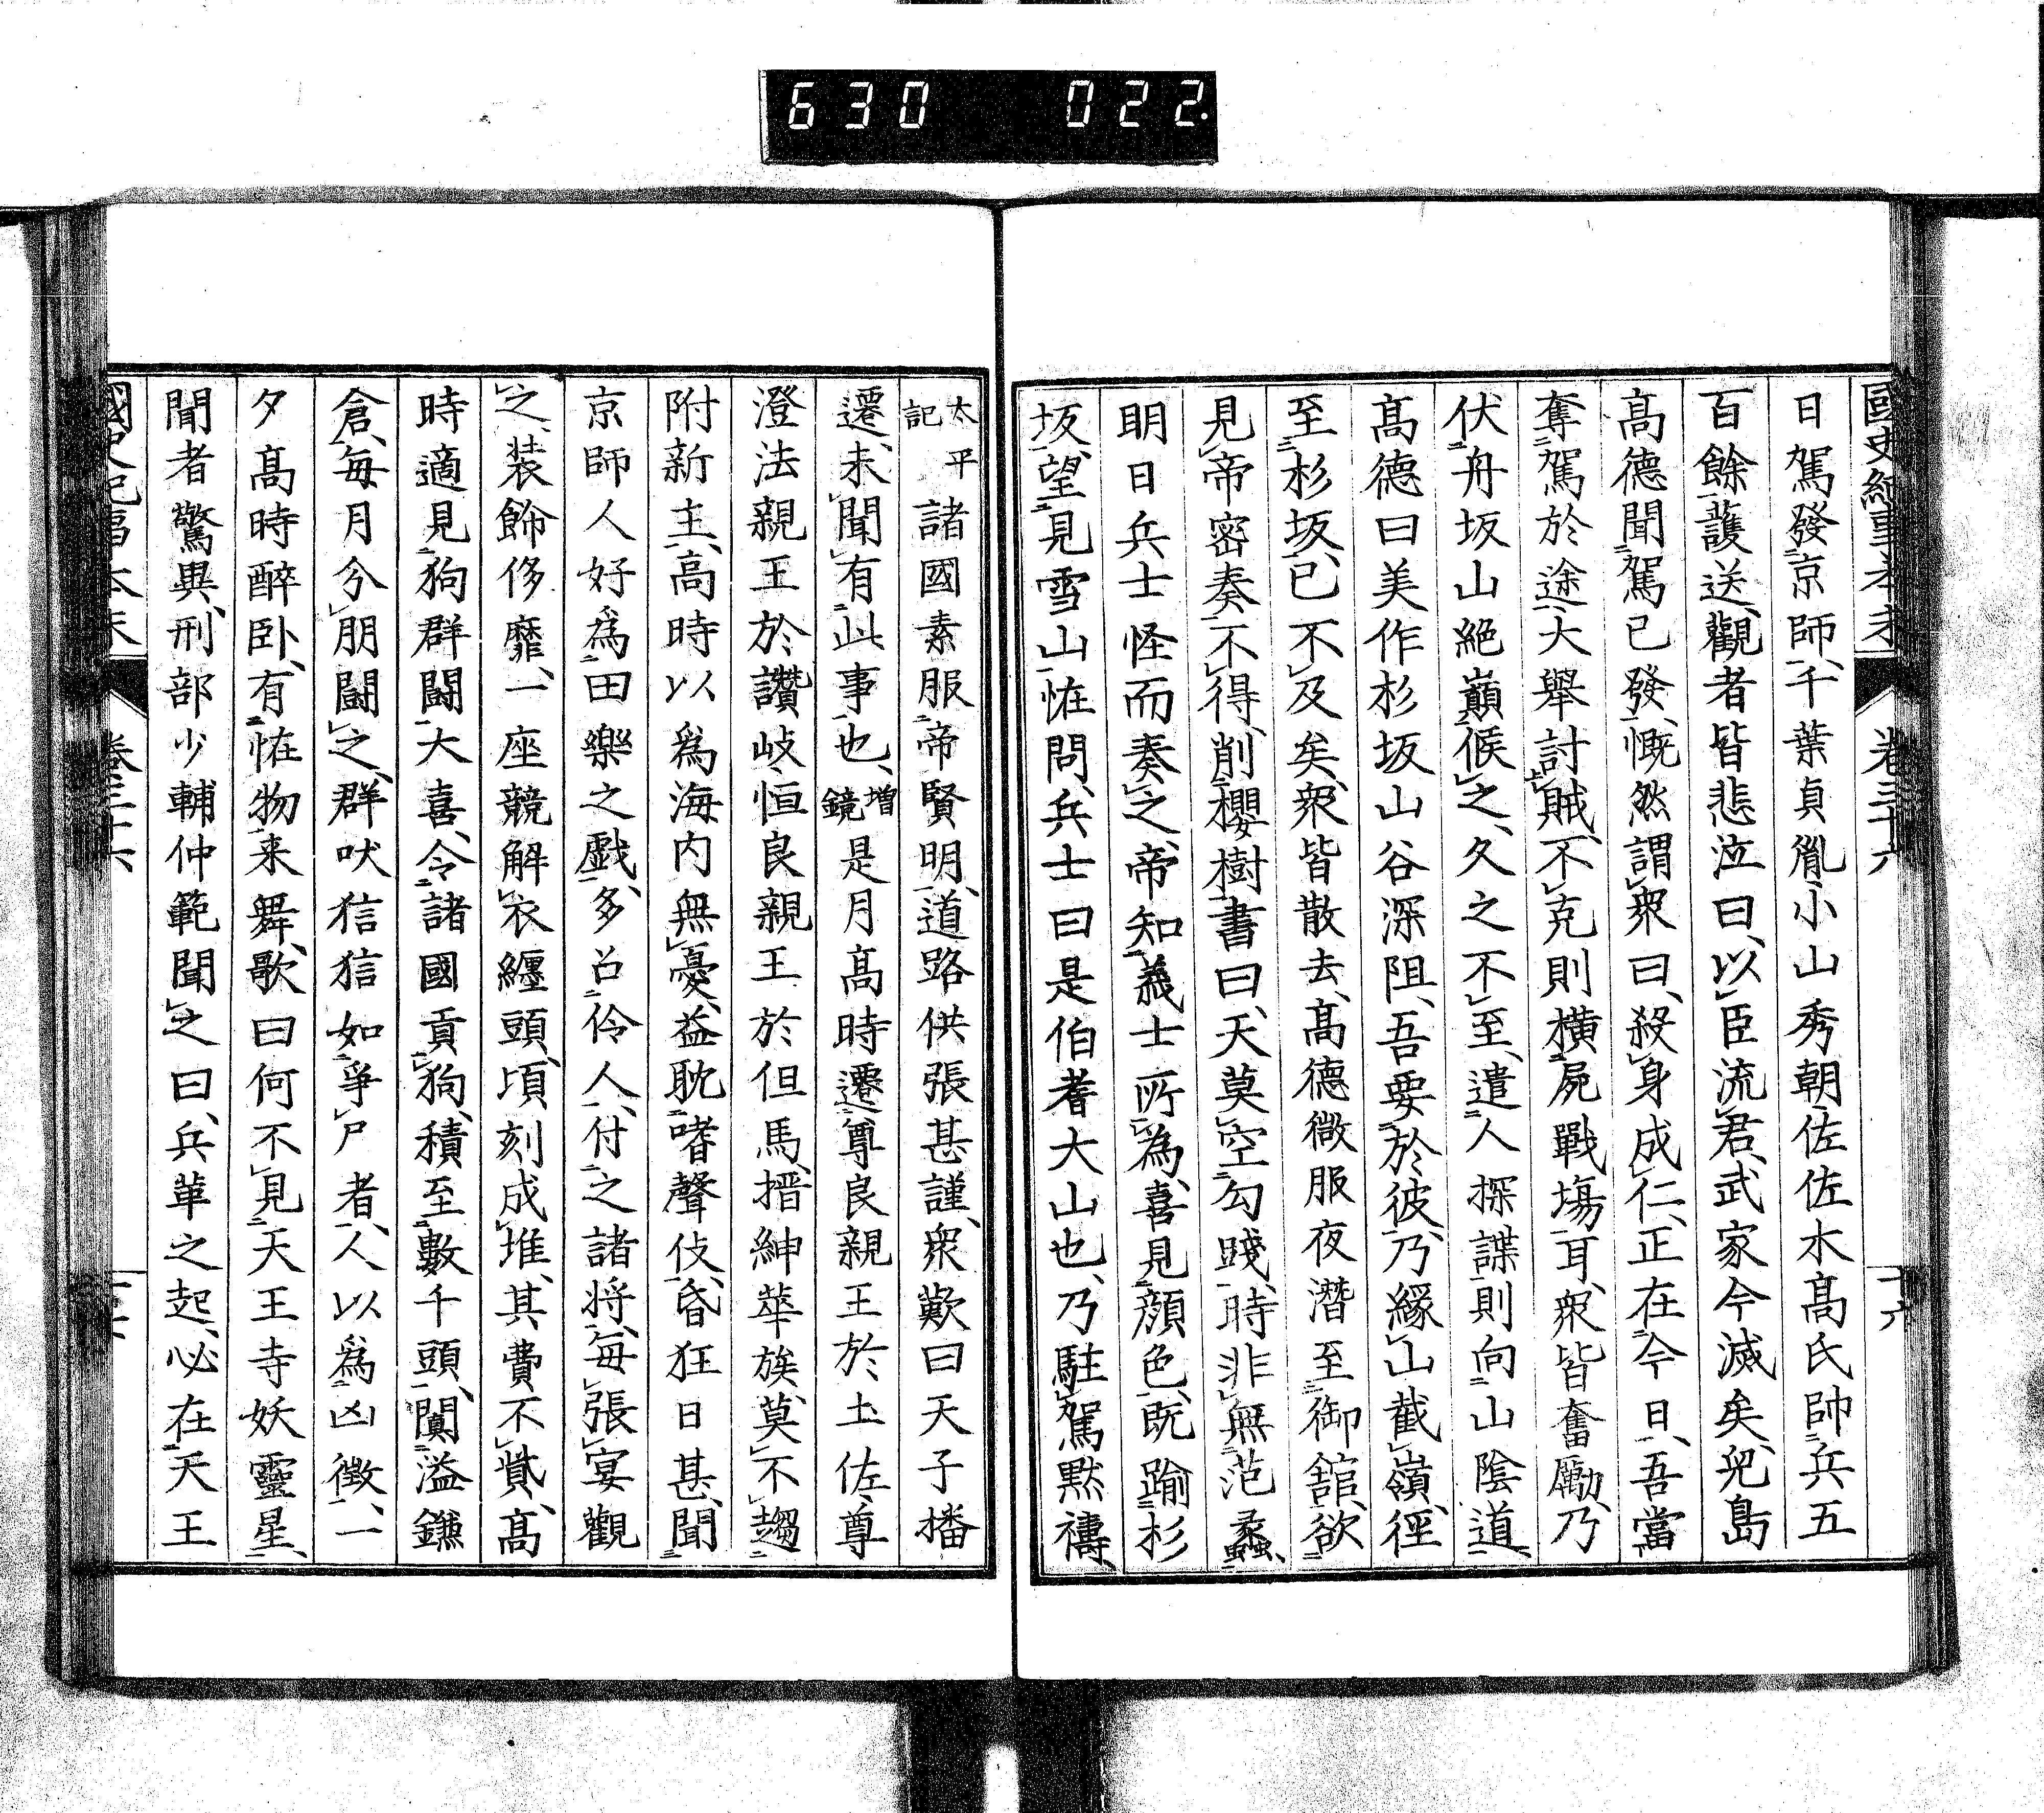 630 022.
國史紀事本末 卷三十六 十六
日駕發京師、千葉貞胤小山秀朝佐佐木高氏帥兵五
百餘護送、觀者皆悲泣曰、以臣流君、武家今滅矣、兒島
高德聞駕已發、慨然謂衆曰、殺身成仁、正在今日、吾當
奪駕於途、大舉討賊、不克則橫屍戰場耳、衆皆奮勵、乃
伏舟坂山絕巔候之、久之不至、遣人探諜則向山陰道、
高德曰美作杉坂山谷深阻、吾要於彼、乃緣山截嶺、徑
至杉坂、已不及矣、衆皆散去、高德微服夜潛至御館、欲
見帝密奏、不得、削櫻樹書曰、天莫空勾踐、時非無范蠡、
明日兵士怪而奏之、帝知義士所為、喜見顔色、既踰杉
坂、望見雪山恠問、兵士曰是伯耆大山也、乃駐駕默禱、
太平記 諸國素服帝賢明、道路供張甚謹、衆歎曰天子播
遷、未聞有此事也、增鏡 是月高時遷尊良親王於土佐、尊
澄法親王於讚岐、恒良親王於但馬、搢紳華族、莫不趨
附新主、高時以爲海內無憂、益耽嗜聲伎、昏狂日甚、聞
京師人好爲田樂之戲、多召伶人、付之諸將、每張宴觀
之、裝飾侈靡、一座競解衣纏頭、頃刻成堆、其費不貲、高
時適見狗群鬪、大喜、令諸國貢狗、積至數千頭、闐溢鎌
倉、每月分朋鬪之、群吠狺狺如爭尸者、人以爲凶徵、一
夕高時醉卧、有恠物來舞、歌曰何不見天王寺妖靈星、
聞者驚異、刑部少輔仲範聞之曰、兵革之起、必在天王
國史紀事本末 卷三十六